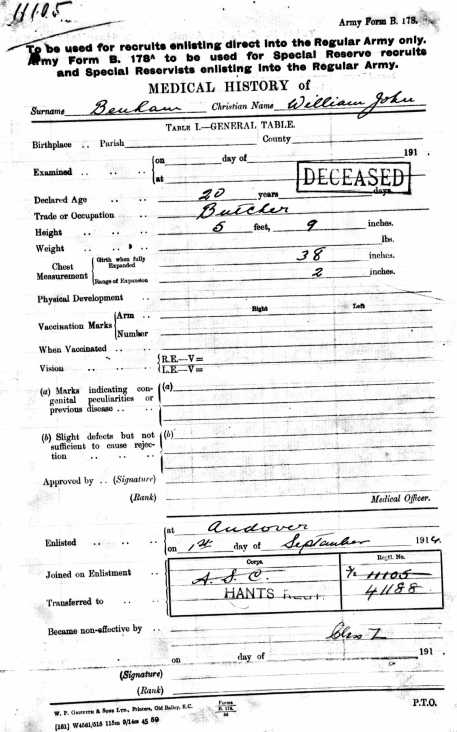 11105
Army Form B. 178.
To be used for recruits enlisting direct into the Regular Army only.
Army Form B. 178A to be used for Special Reserve recruits
and Special Reservists enlisting into the Regular Army.
MEDICAL HISTORY of
Surname Benham Christian Name William John
TABLE I.—GENERAL TABLE.
Birthplace .. Parish County
Examined .. .. .. { on day of 191 .
at
DECEASED
Declared Age .. .. 20 years days.
Trade or Occupation .. .. Butcher
Height .. .. .. 5 feet, 9 inches.
Weight .. .. .. lbs.
Chest Measurement { Girth when fully Expanded 38 inches.
Range of Expansion 2 inches.
Physical Development ..
Right Left
Vaccination Marks { Arm ..
Number
When Vaccinated .. ..
Vision .. .. .. { R.E.—V=
L.E.—V=
(a) Marks indicating con- { (a)
genital peculiarities or
previous disease .. ..
(b) Slight defects but not { (b)
sufficient to cause rejec-
tion .. .. ..
Approved by .. (Signature)
(Rank) Medical Officer.
Enlisted .. .. .. { at Andover
on 1st day of September 1914.
Corps. Regtl. No.
Joined on Enlistment .. A.S.C. 11105
Transferred to .. .. HANTS REGT. 41188
Became non-effective by ..
Class Z
on day of 191 .
(Signature)
(Rank)
W. P. GRIFFITH & SONS LTD., Printers, Old Bailey, E.C.
Forms
B. 178.
P.T.O.
[151] W4561/515 115m 9/14m 45 59